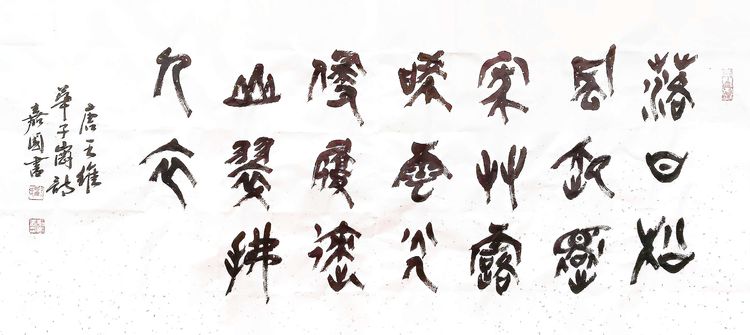 落日松
風起還
家草露
晞雲光
侵履迹
山翠拂
人衣
唐王維
華子崗詩
嘉國書